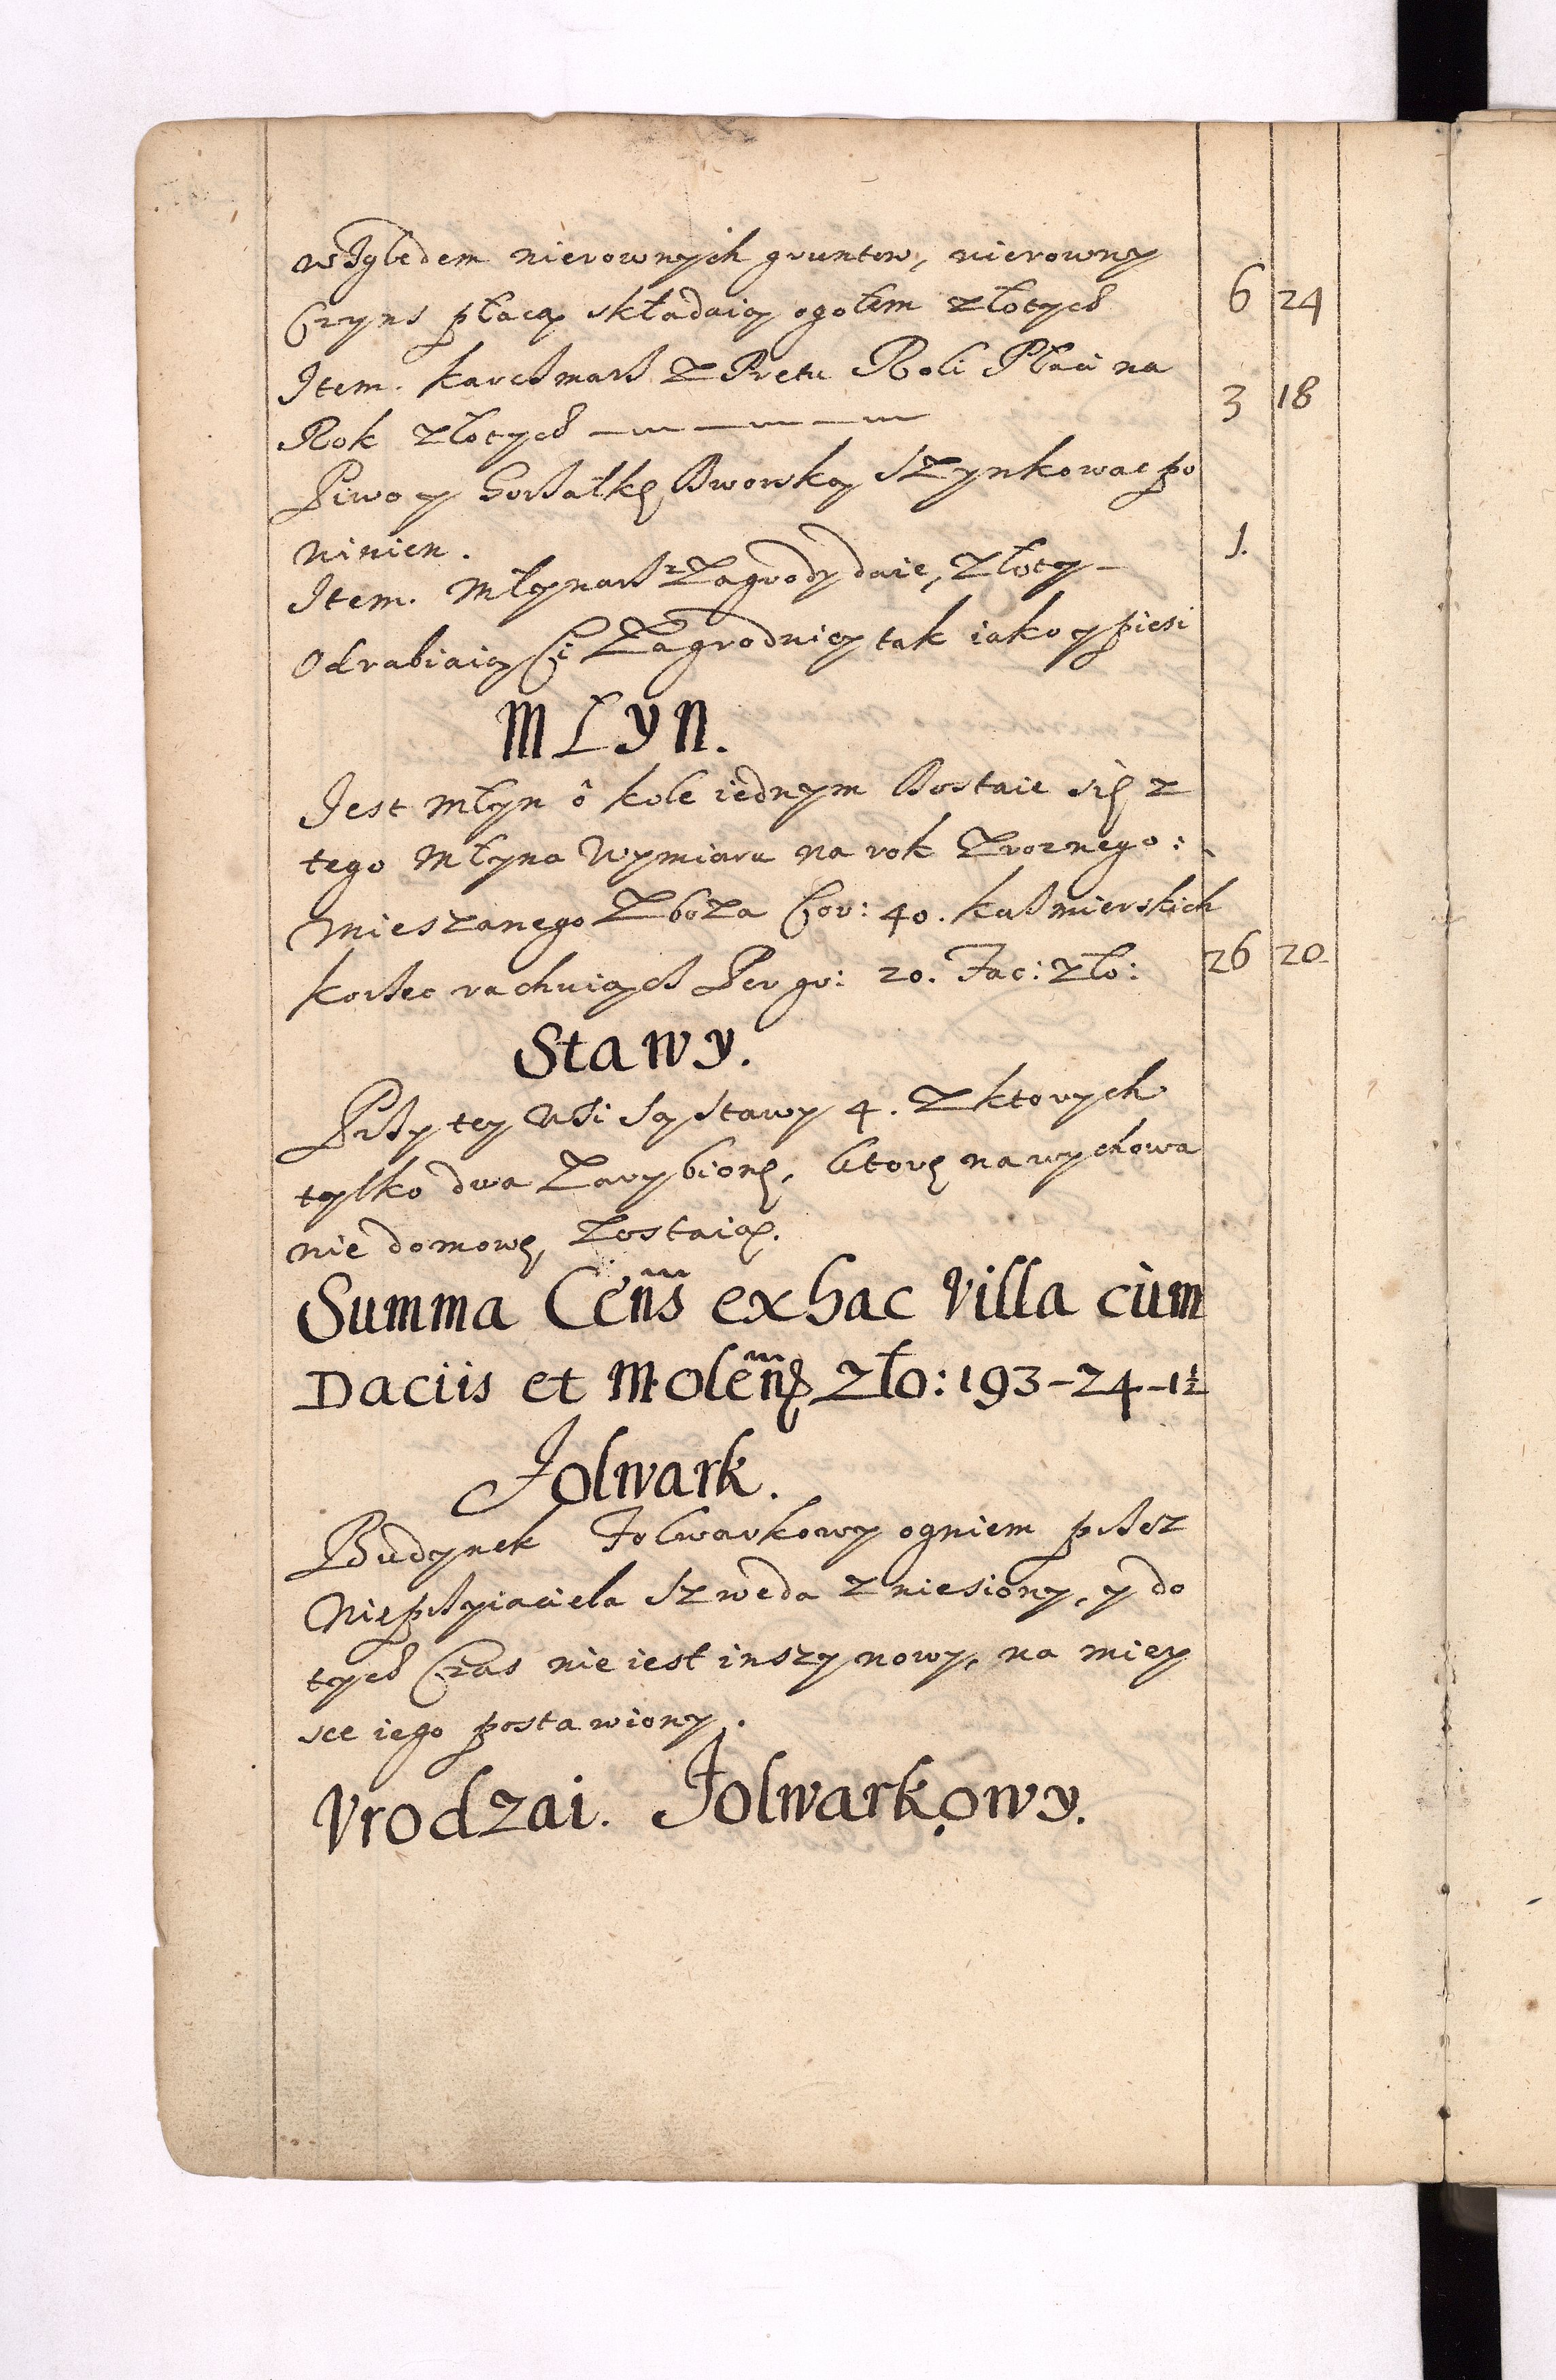 względem nierownych gruntow, nierowny
Czyns płacą składaią ogołem złotych 6 24
Item. Karczmarz z Pretu Roli Płaci na
Rok złotych 3 18
Piwo y Gorzałkę Dworską szynkowac po
winien.
Item. Młynarz z Zagrody daie, złoty 1.
Odrabiaią Ci Zagrodnicy tak iako y piesi
MŁyn.
Jest Młyn ô kole iednym Dostaie się z
tego Młyna Wymiaru na rok Zroznego:
Mieszanego Zboza Cor: 40. Kazmierskich
Korzec rachuiąch Per gr: 20. Fac: zło: 26 20
Stawy.
Przy tey Wsi są stawy 4. Z ktorych
tylko dwa Zarybionę, ktorę na wychowa
nie domowę, Zostaią.
Summa Cens ex hac Villa cùm
Daciis et Molen: Zło: 193-24-1½
Folwark.
Budynek Folwarkowy ogniem przez
Nieprzyiaciela Szweda zniesiony, y do
tych Czas nie iest inszy nowy, na miey
sce iego postawiony.
Vrodzai. Folwarkowy.